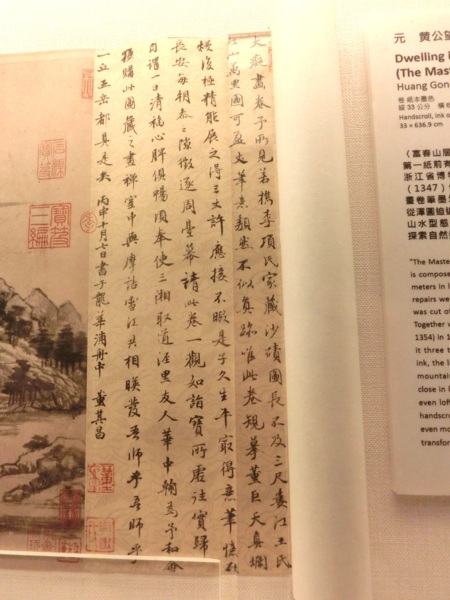 大癡畫卷予所見若檇李項氏家藏沙磧圖長不及三尺婁江王氏
江山萬里圖可盈丈筆意頹然不似真跡唯此卷規摹董巨天真爛
熳復極精能展之得三丈許應接不暇是子久生平最得意筆憶在
長安每朝參之隙徵逐周臺幕請此卷一觀如詣寶所虛往實歸
自謂一日清福心脾俱暢頃奉使三湘取道涇里友人華中翰為予和會
獲購此圖藏之畫禪室中與摩詰雪江共相映發吾師乎吾師乎
一丘五岳都具是矣 丙申十月七日書于龍華浦舟中 董其昌
元 黃公望
Dwelling i
(The Mast
Huang Gon
卷 紙本墨色
縱 33 公分 橫 6
Handscroll, ink o
33 × 636.9 cm
《富春山居
第一紙前有
浙江省博物
（1347）
畫卷筆墨
從渾圓
山水型態
探索自然
"The Master
is compose
meters in l
repairs we
was cut of
Together v
1354) in 1
it three t
ink, the l
mountain
close in l
even loft
handscro
even mo
transfor